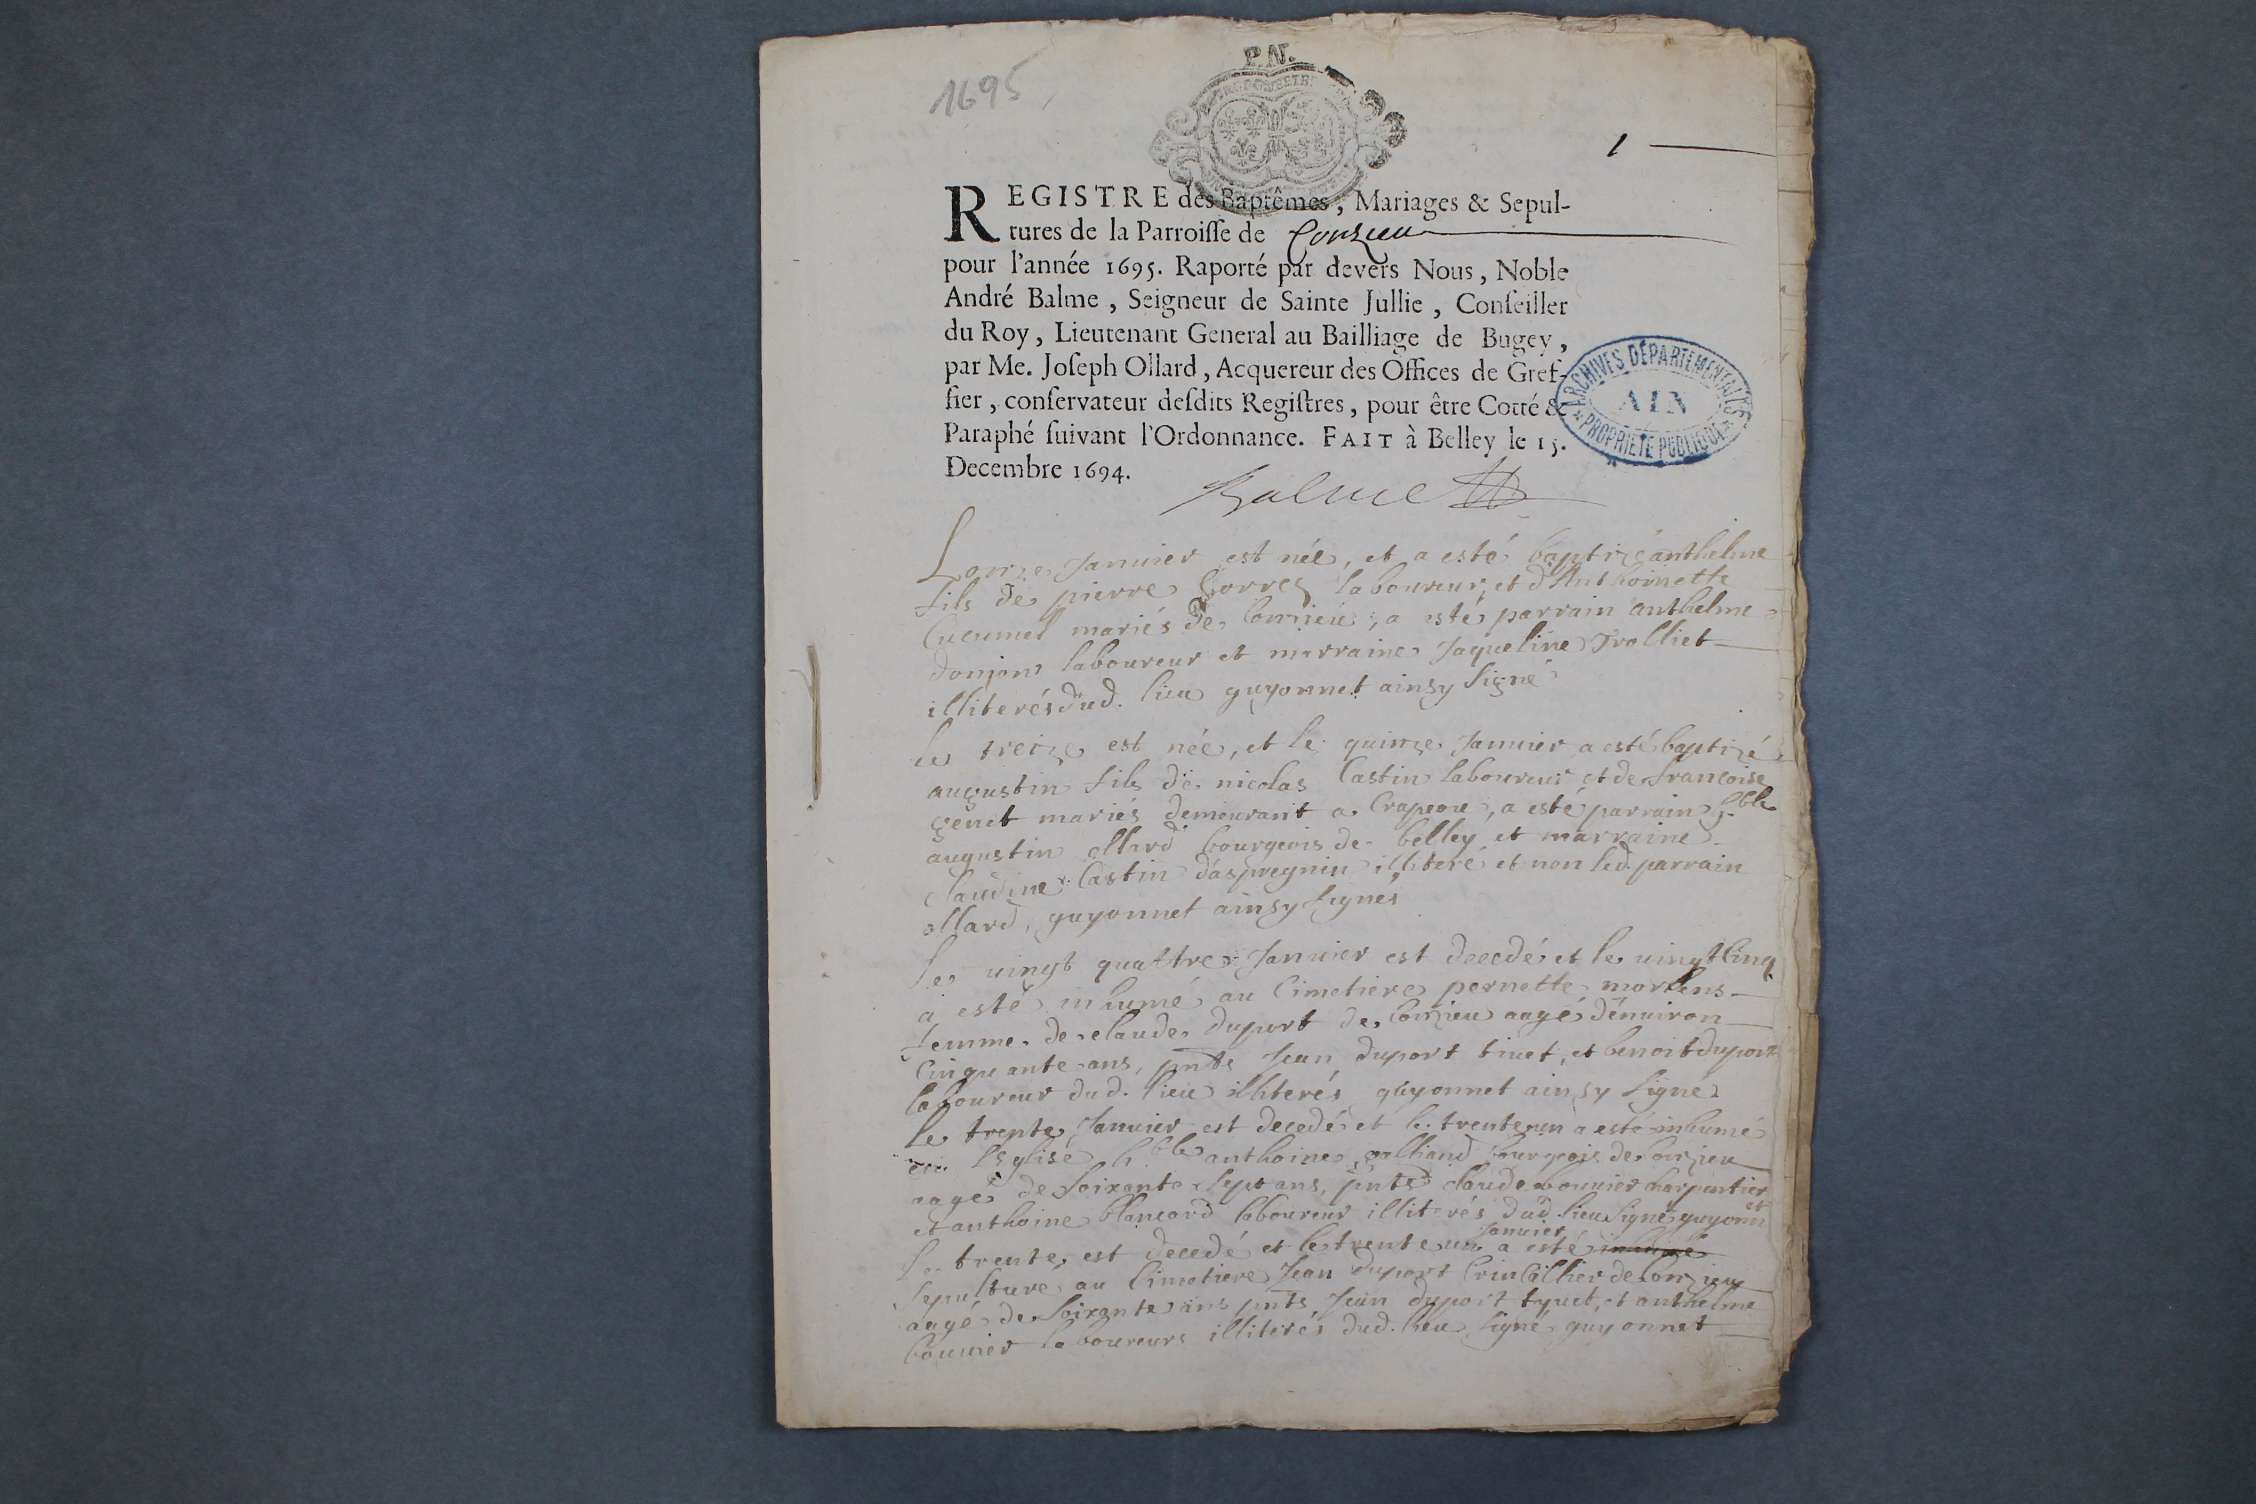 1695
P.N.
1
REGISTRE des Baptêmes, Mariages & Sepul-
tures de la Parroisse de Conzieu
pour l'année 1695. Raporté par devers Nous, Noble
André Balme, Seigneur de Sainte Jullie, Conseiller
du Roy, Lieutenant General au Bailliage de Bugey,
par Me. Joseph Ollard, Acquereur des Offices de Gref-
fier, conservateur desdits Registres, pour être Cotté &
Paraphé suivant l'Ordonnance. FAIT à Belley le 15.
Decembre 1694.
ARCHIVES DÉPARTEMENTALES
AIN
PROPRIÉTÉ PUBLIQUE
Balme
Lonze Januier est née, et a esté baptizé anthelme
fils de pierre laboureur, et d'Anthoinette
mariés de Conzieu, a esté parrain anthelme
donjon laboureur et marraine Jaqueline Trolliet
illiterés dud. lieu guyonnet ainsy signé
le treize est née, et le quinze Januier a esté baptizé
augustin fils de nicolas Castin laboureur et de francoise
genet mariés demeurant a Crapeou, a esté parrain hble
augustin ollard bourgeois de belley et marraine
Claudine Castin d'aspregnin illiteré et non led. parrain
ollard, guyonnet ainsy signés
le uingt quattre Januier est decedé et le uingt Cinq
a esté inhumé au Cimetiere pernette mortens
femme de claude duport de Conzieu aagé d'enuiron
Cinquante ans, pnts Jean duport tiuet, et benoit duport
laboureur dud. lieu illiterés guyonnet ainsy signé
le trente Januier est decedé et le trente un a esté inhumé
en l'Eglise hble anthoine galliand bourgeois de Conzieu
aagé de soixante sept ans, pnts claude bouuier charpentier
et anthoine blancard laboureur illiterés dud. lieu signé guyonnet
le trente, est decedé et le trente un Januier a esté inhumé
sepulturé au Cimetiere Jean duport de Conzieu
aagé de soixante ans pnts Jean duport tyuet, et anthelme
bouuier laboureurs illiterés dud. lieu, signé guyonnet